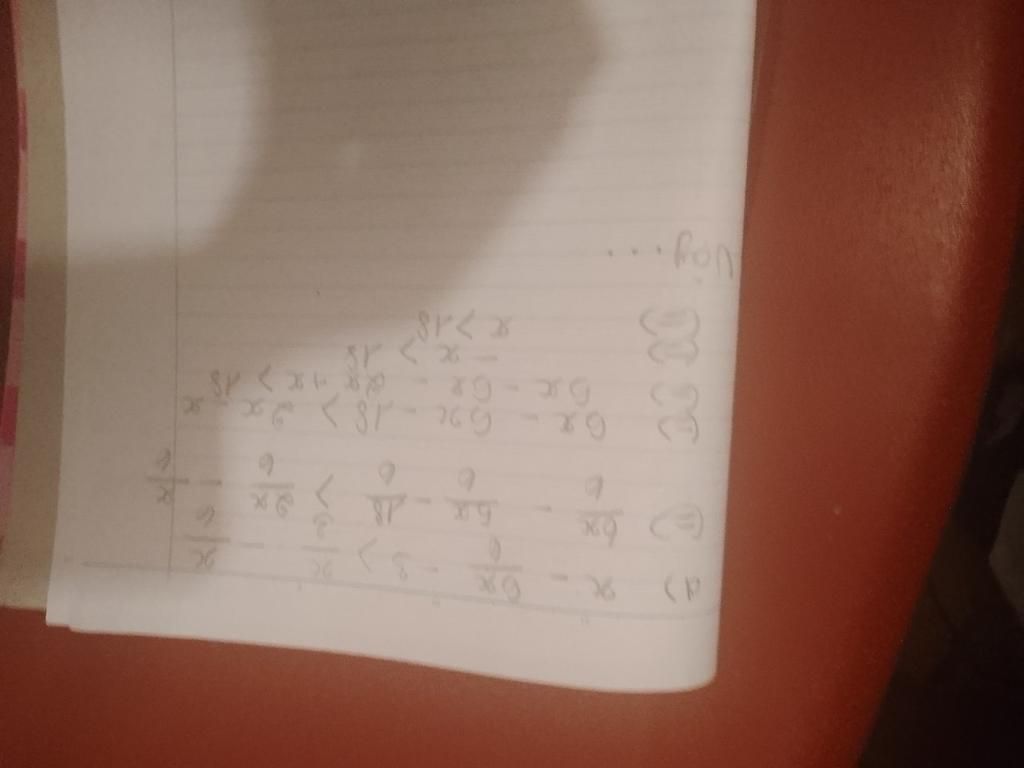 a) x - 5x/6 - 3 > x/3 - x/6
⇔ 6x/6 - 5x/6 - 18/6 > 2x/6 - x/6
⇔ 6x - 5x - 18 > 2x - x
⇔ 6x - 5x - 2x + x > 18
⇔ - x > 18
⇔ x > 18
Vậy ...